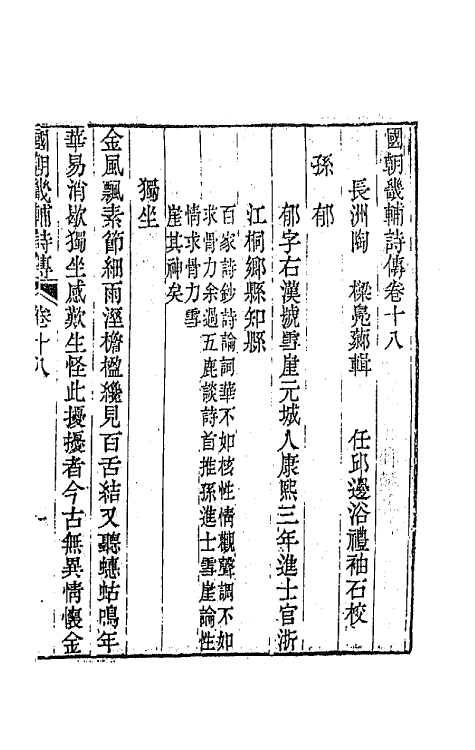 國朝畿輔詩傳卷十八
長洲陶 樑鳧薌輯 任邱邊浴禮袖石校
孫 郁
郁字右漢號雪崖元城人康熙三年進士官浙
江桐鄉縣知縣
百家詩鈔詩論詞華不如核性情觀聲調不如
求骨力余過五鹿談詩首推孫進士雪崖論性
情求骨力雪
崖其神矣
獨坐
金風飄素節細雨溼檐楹纔見百舌結又聽蟪蛄鳴年
華易消歇獨坐感歎生怪此擾擾者今古無異情懷金
國朝畿輔詩傳 卷十八 一